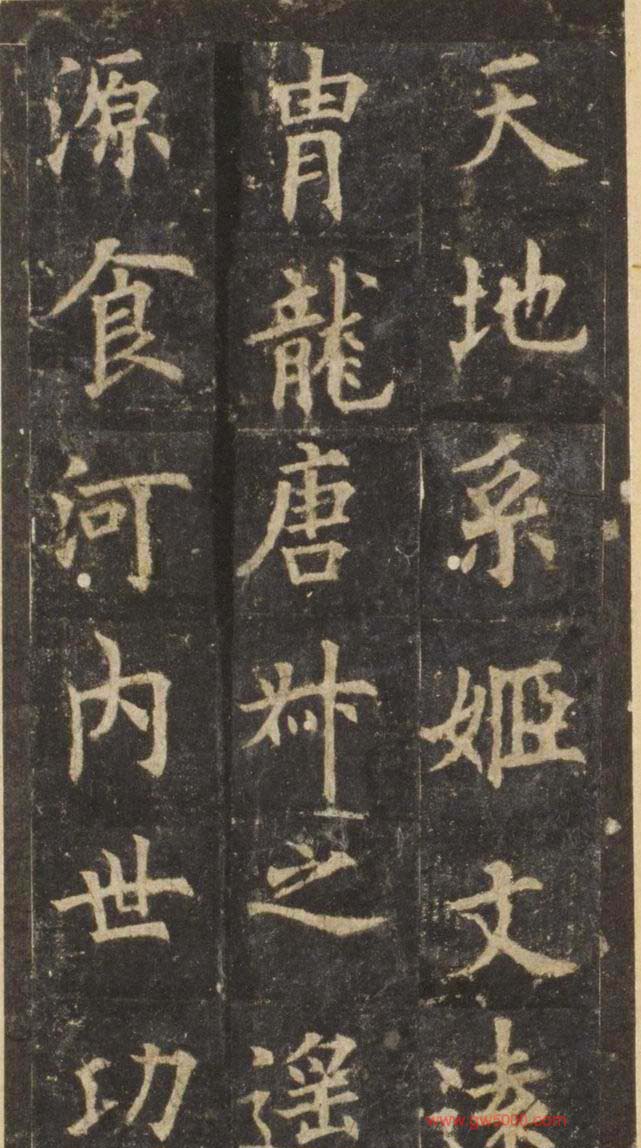 天地系姬文
胄龍唐叔之遥
源食河内世功